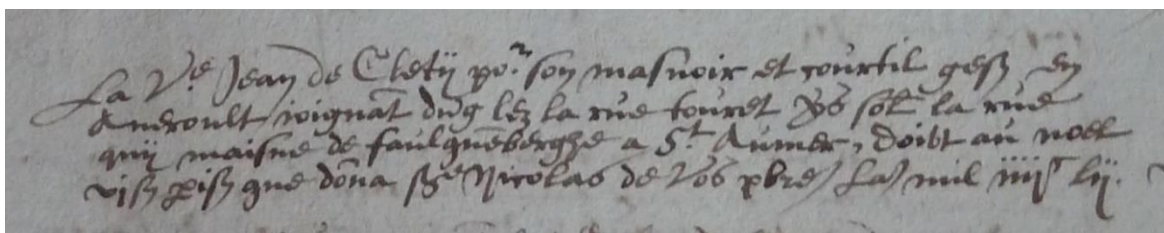 La Vᵉ Jean de Cletÿ poʳ son masnoir et courtil gesᵗ en
Averoult, joignāt dūg lez la rue touret vˢ sol la rue
quy maisne de faulquēberghe a Sᵗ Aumer, doibt au noel
viˢ pisˢ que dōna sʳᵉ Nicolas de Vos pbre Lan mil iiiiᶜ lii.